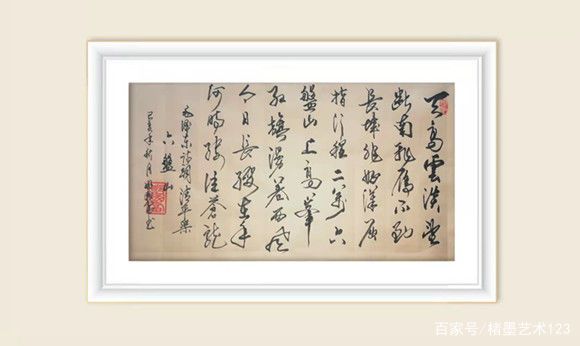 天高雲淡望
断南飛雁不到
長城非好漢屈
指行程二万六
盤山上高峯
紅旗漫卷西风
今日長纓在手
何時縛住蒼龍
毛澤东诗词清平樂
六盤山
己亥年秋月
百家号/楮墨艺术123